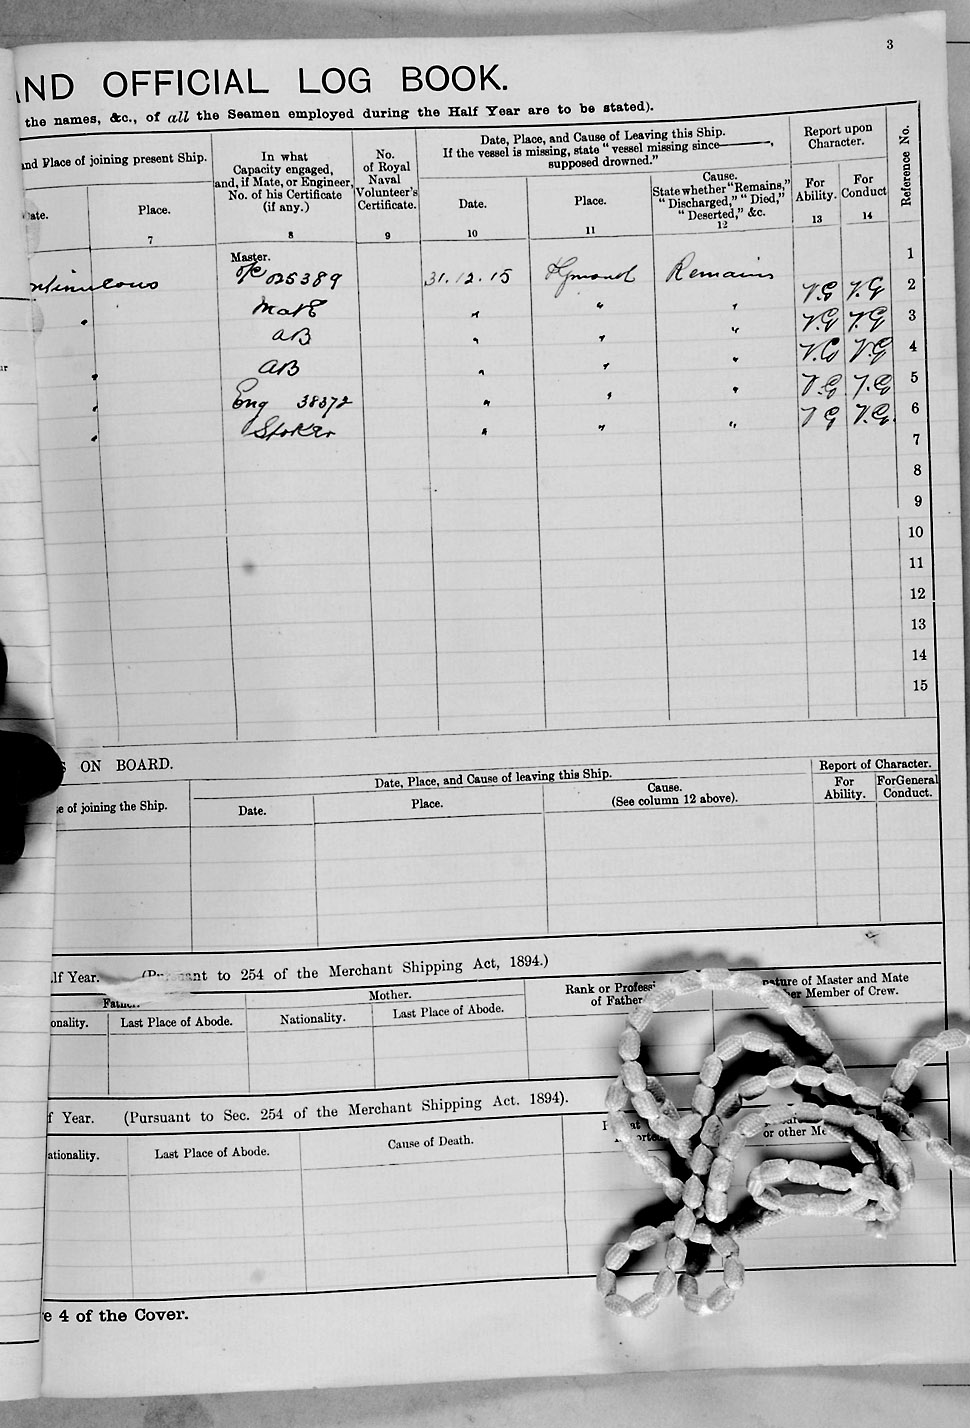 3
ND OFFICIAL LOG BOOK.
the names, &c., of all the Seamen employed during the Half Year are to be stated).
nd Place of joining present Ship.
ate.
Place.
7
In what
Capacity engaged,
and, if Mate, or Engineer,
No. of his Certificate
(if any.)
8
No.
of Royal
Naval
Volunteer's
Certificate.
9
Date, Place, and Cause of Leaving this Ship.
If the vessel is missing, state "vessel missing since———,
supposed drowned."
Date.
10
Place.
11
Cause.
State whether "Remains,"
"Discharged," "Died,"
"Deserted," &c.
12
Report upon
Character.
For
Ability.
13
For
Conduct
14
Reference No.
Master.
ntinuous 025389 31.12.15 Plymouth Remains 1
Mate " " " V.G V.G 2
AB " " " V.G V.G 3
AB " " " V.G V.G 4
Eng 38372 " " " V.G V.G 5
Stoker " " " V G V.G. 6
7
8
9
10
11
12
13
14
15
S ON BOARD.
e of joining the Ship.
Date, Place, and Cause of leaving this Ship.
Date.
Place.
Cause.
(See column 12 above).
Report of Character.
For
Ability.
For General
Conduct.
lf Year. (Pursuant to 254 of the Merchant Shipping Act, 1894.)
Father.
onality.
Last Place of Abode.
Mother.
Nationality.
Last Place of Abode.
Rank or Professi
of Father
nature of Master and Mate
her Member of Crew.
f Year. (Pursuant to Sec. 254 of the Merchant Shipping Act. 1894).
ationality.
Last Place of Abode.
Cause of Death.
or other Me
e 4 of the Cover.